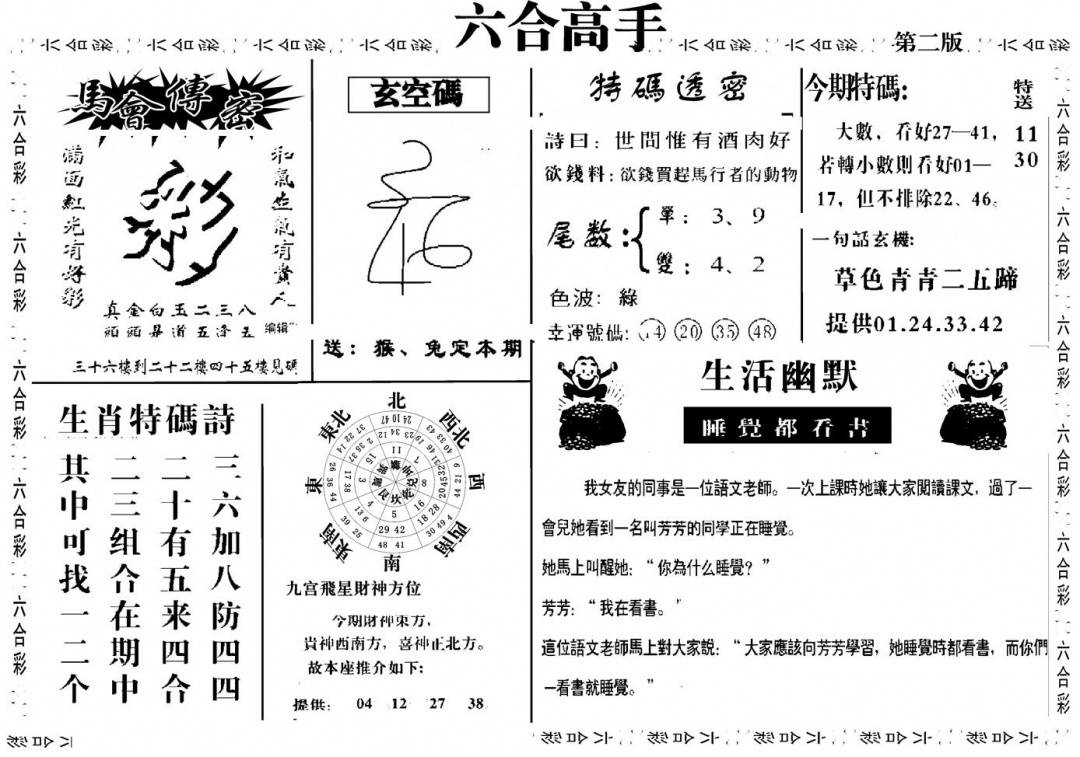 六合高手
第二版
馬會傳密
滿面紅光有好彩
彩
和氣生氣有貴人
真金白玉二三八
頭頭是道五逢五
编辑
三十六樓到二十二樓四十五樓見碼
玄空碼
送：猴、兔定本期
特碼透密
詩曰：世間惟有酒肉好
欲錢料：欲錢買趕馬行者的動物
尾数：
單：3、9
雙：4、2
色波：綠
幸運號碼：14 20 35 48
今期特碼:
特送
11
30
大數，看好27—41，
若轉小數則看好01—
17，但不排除22、46。
一句話玄機:
草色青青二五蹄
提供01.24.33.42
生肖特碼詩
三六加八防四四
二十有五来四合
二三组合在期中
其中可找一二个
北
西北
西
西南
南
東南
東
東北
九宫飛星財神方位
今期財神東方，
貴神西南方，喜神正北方。
故本座推介如下:
提供: 04 12 27 38
生活幽默
睡覺都看書
我女友的同事是一位語文老師。一次上課時她讓大家閱讀課文，過了一
會兒她看到一名叫芳芳的同學正在睡覺。
她馬上叫醒她：“你為什么睡覺？”
芳芳：“我在看書。’
這位語文老師馬上對大家說：“大家應該向芳芳學習，她睡覺時都看書，而你們
一看書就睡覺。”
六合彩 六合彩 六合彩 六合彩 六合彩 六合彩